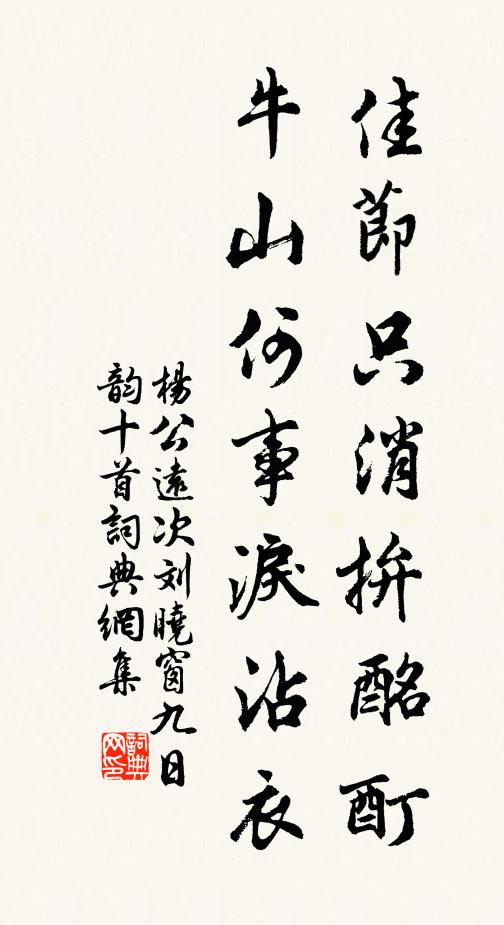 佳節只消拚酩酊
牛山何事淚沾衣
楊公遠次刘曉窗九日
韵十首詞典網集
詞典
网印